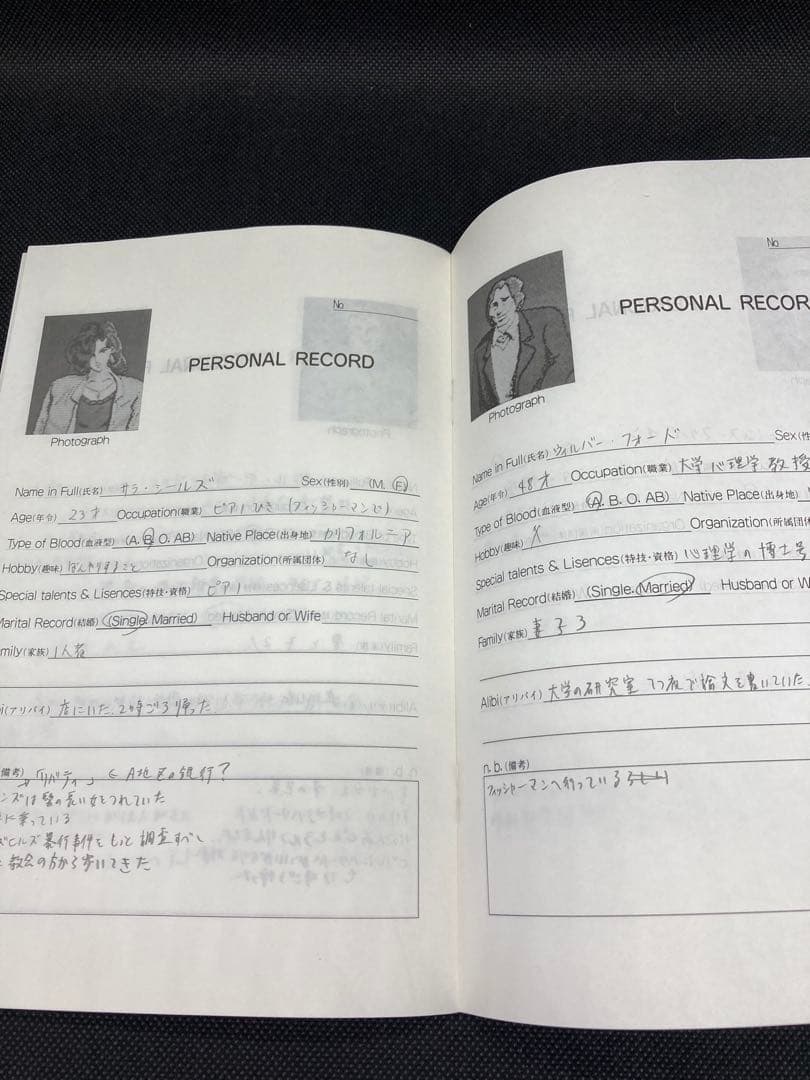 No
PERSONAL RECORD
Photograph
Name in Full(氏名) サラ・シールズ Sex(性別) (M. F)
Age(年令) 23才 Occupation(職業) ピアノひき(フィッシャーマンで)
Type of Blood(血液型) (A. B. O. AB) Native Place(出身地) カリフォルニア
Hobby(趣味) なんやりすること Organization(所属団体) なし
Special talents & Lisences(特技・資格) ピアノ
Marital Record(結婚) (Single. Married) Husband or Wife
mily(家族) 1人暮
i(アリバイ) 店にいた。2時ごろ帰った
備考) 「リバティ」 A地区の銀行?
ンズは髪の長い女をつれていた
に乗っている
ズヒルズ暴行事件をもっと調査すべし
教会の方から歩いてきた
No
PERSONAL RECOR
Photograph
Name in Full(氏名) ウィルバー・フォード Sex(性
Age(年令) 48才 Occupation(職業) 大学心理学教授
Type of Blood(血液型) (A. B. O. AB) Native Place(出身地)
Hobby(趣味) X Organization(所属団体
Special talents & Lisences(特技・資格) 心理学の博士号
Marital Record(結婚) (Single. Married) Husband or W
Family(家族) 妻子3
Alibi(アリバイ) 大学の研究室 てつ夜で論文を書いていた
n.b.(備考)
フィッシャーマンへ行っている